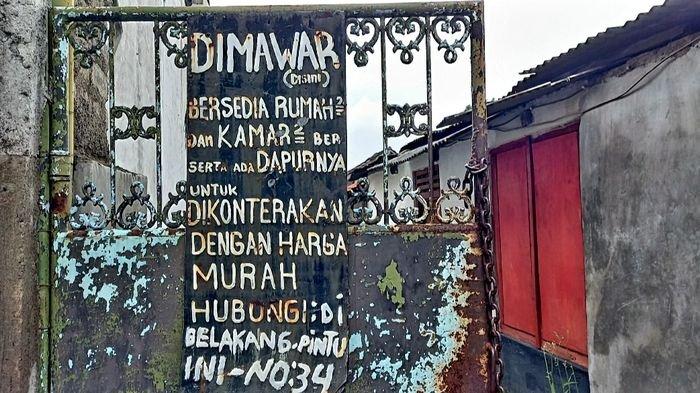 DIMAWAR
(DISINI)
BERSEDIA RUMAH2
DAN KAMAR2 BER
SERTA ADA DAPURNYA
UNTUK
DIKONTERAKAN
DENGAN HARGA
MURAH
HUBONGI:DI
BELAKANG.PINTU
INI-NO.34